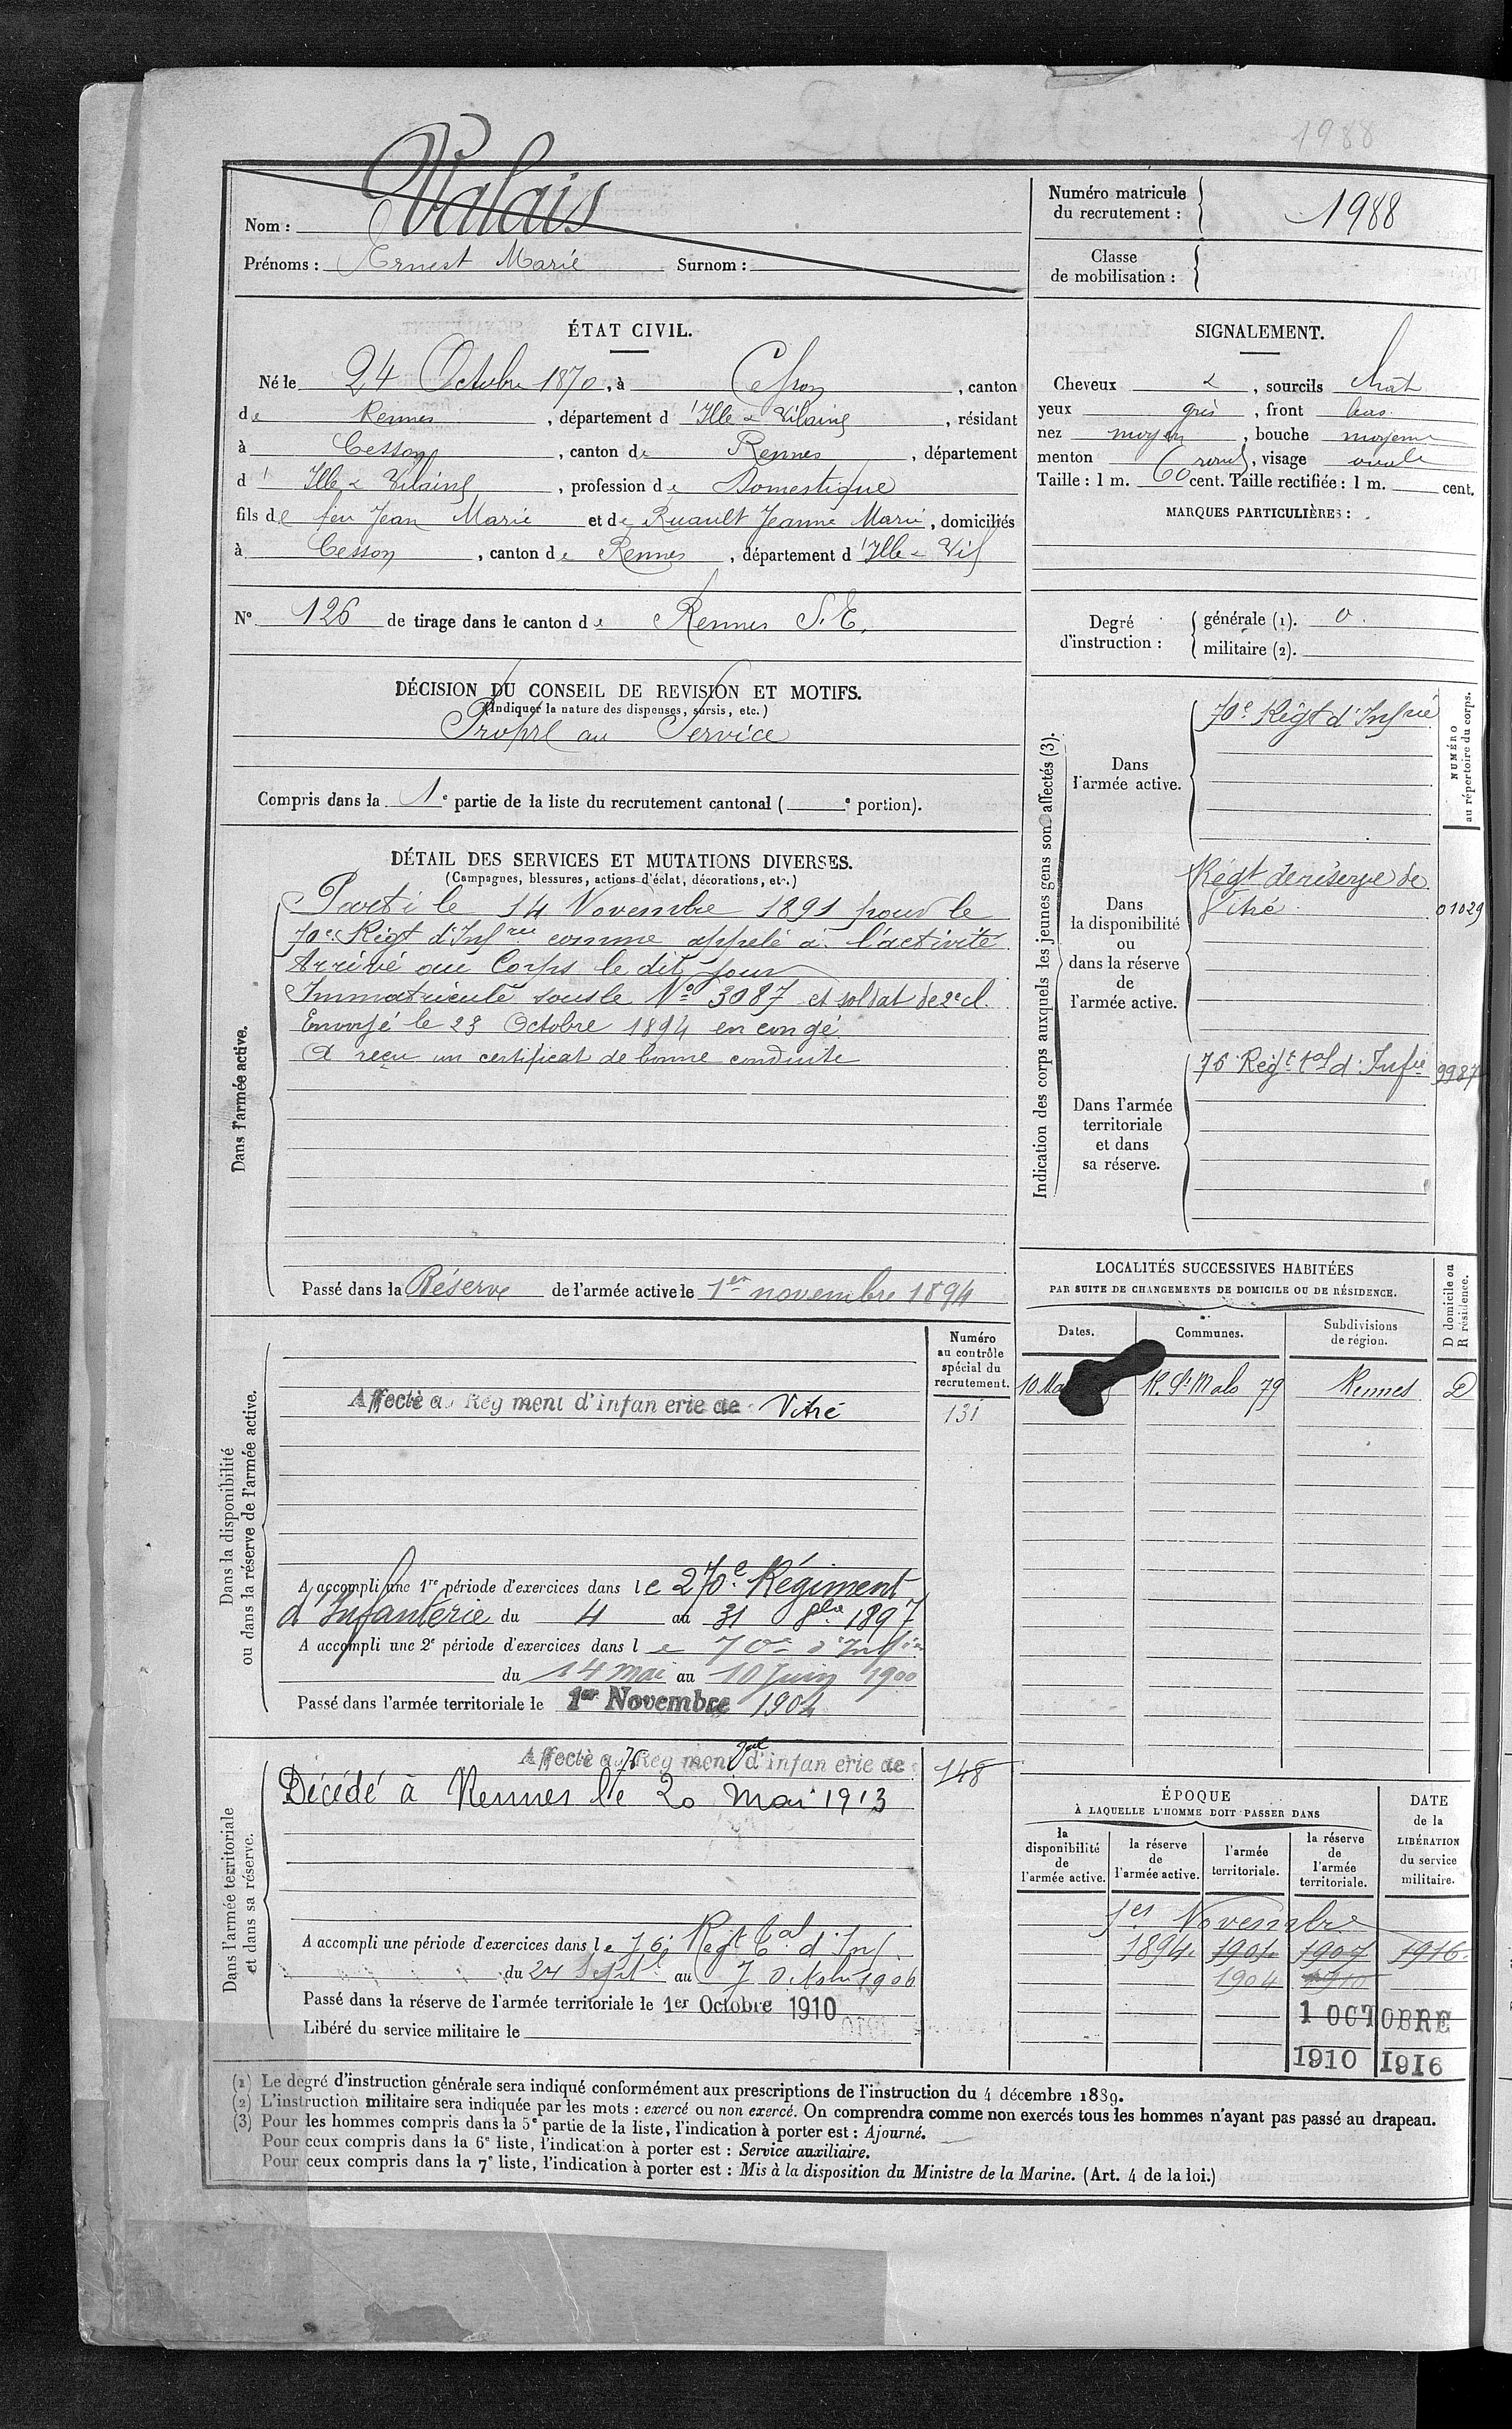 1988
Nom : Valais
Prénoms : Ernest Marie Surnom :
Numéro matricule du recrutement : 1988
Classe de mobilisation :
ÉTAT CIVIL.
Né le 24 Octobre 1870, à Cesson, canton
de Rennes, département d'Ille & Vilaine, résidant
à Cesson, canton de Rennes, département
d'Ille & Vilaine, profession de Domestique
fils de feu Jean Marie et de Ruault Jeanne Marie, domiciliés
à Cesson, canton de Rennes, département d'Ille & Vil
N° 126 de tirage dans le canton de Rennes S.E.
SIGNALEMENT.
Cheveux &, sourcils chât
yeux gris, front bas
nez moyen, bouche moyenne
menton rond, visage ovale
Taille : 1 m. 60 cent. Taille rectifiée : 1 m. cent.
MARQUES PARTICULIÈRES :
Degré d'instruction : générale (1). 0.
militaire (2).
DÉCISION DU CONSEIL DE REVISION ET MOTIFS.
(Indiquer la nature des dispenses, sursis, etc.)
Propre au Service
Compris dans la 1e partie de la liste du recrutement cantonal ( e portion).
DÉTAIL DES SERVICES ET MUTATIONS DIVERSES.
(Campagnes, blessures, actions d'éclat, décorations, etc.)
Dans l'armée active.
Parti le 14 Novembre 1891 pour le
70e Régt d'Infrie comme appelé à l'activité
Arrivé au Corps le dit jour
Immatriculé sous le N° 3087 et soldat de 2e cl.
Envoyé le 23 Octobre 1894 en congé
A reçu un certificat de bonne conduite
Passé dans la Réserve de l'armée active le 1er novembre 1894
Indication des corps auxquels les jeunes gens sont affectés (3).
NUMÉRO au répertoire du corps.
Dans l'armée active.
70e Régt d'Infrie
Dans la disponibilité ou dans la réserve de l'armée active.
Régt de réserve de
Vitré 01029
Dans l'armée territoriale et dans sa réserve.
76 Régt tal d'Infie 9987
LOCALITÉS SUCCESSIVES HABITÉES
PAR SUITE DE CHANGEMENTS DE DOMICILE OU DE RÉSIDENCE.
Dates. Communes. Subdivisions de région. D domicile ou R résidence.
10 Ma R. St Malo 79 Rennes D
Dans la disponibilité ou dans la réserve de l'armée active.
Numéro au contrôle spécial du recrutement.
Affecté au Régiment d'infanterie de Vitré 131
A accompli une 1re période d'exercices dans le 270e Régiment
d'Infanterie du 4 au 31 8bre 1897
A accompli une 2e période d'exercices dans le 70e d'Infie
du 14 mai au 10 Juin 1900
Passé dans l'armée territoriale le 1er Novembre 1904
Dans l'armée territoriale et dans sa réserve.
Affecté au 76 Régiment tal d'infanterie de 148
Décédé à Rennes le 20 mai 1913
A accompli une période d'exercices dans le 76e Régt tal d'Inf.
du 24 Septbre au 7 Octobre 1906
Passé dans la réserve de l'armée territoriale le 1er Octobre 1910
Libéré du service militaire le
ÉPOQUE
À LAQUELLE L'HOMME DOIT PASSER DANS
la disponibilité de l'armée active.
la réserve de l'armée active.
l'armée territoriale.
la réserve de l'armée territoriale.
DATE de la LIBÉRATION du service militaire.
1er Novembre
1894 1901 1907 1916
1904 1910
1 OCTOBRE
1910 1916
(1) Le degré d'instruction générale sera indiqué conformément aux prescriptions de l'instruction du 4 décembre 1889.
(2) L'instruction militaire sera indiquée par les mots : exercé ou non exercé. On comprendra comme non exercés tous les hommes n'ayant pas passé au drapeau.
(3) Pour les hommes compris dans la 5e partie de la liste, l'indication à porter est : Ajourné.
Pour ceux compris dans la 6e liste, l'indication à porter est : Service auxiliaire.
Pour ceux compris dans la 7e liste, l'indication à porter est : Mis à la disposition du Ministre de la Marine. (Art. 4 de la loi.)